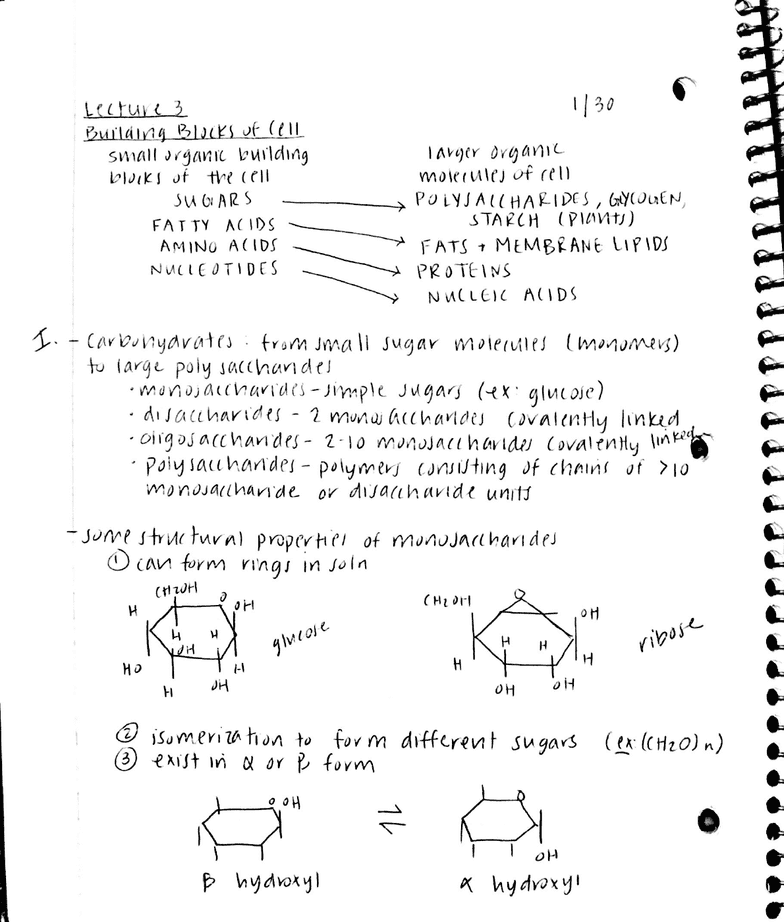 Lecture 3
1/30
Building Blocks of Cell
small organic building
blocks of the cell
larger organic
molecules of cell
SUGARS
POLYSACCHARIDES, GLYCOGEN,
STARCH (Plants)
FATTY ACIDS
FATS + MEMBRANE LIPIDS
AMINO ACIDS
PROTEINS
NUCLEOTIDES
NUCLEIC ACIDS
I. - Carbohydrates : from small sugar molecules (monomers)
to large polysaccharides
• monosaccharides - simple sugars (ex: glucose)
• disaccharides - 2 monosaccharides covalently linked
• oligosaccharides - 2-10 monosaccharides covalently linked
• polysaccharides - polymers consisting of chains of >10
monosaccharide or disaccharide units
- some structural properties of monosaccharides
① can form rings in soln
CH2OH
O
H
OH
H
H
OH
HO
H
H
OH
glucose
CH2OH
O
OH
H
H
H
H
OH
OH
ribose
② isomerization to form different sugars (ex: (CH2O)n)
③ exist in α or β form
O OH
⇌
O
OH
β hydroxyl
α hydroxyl